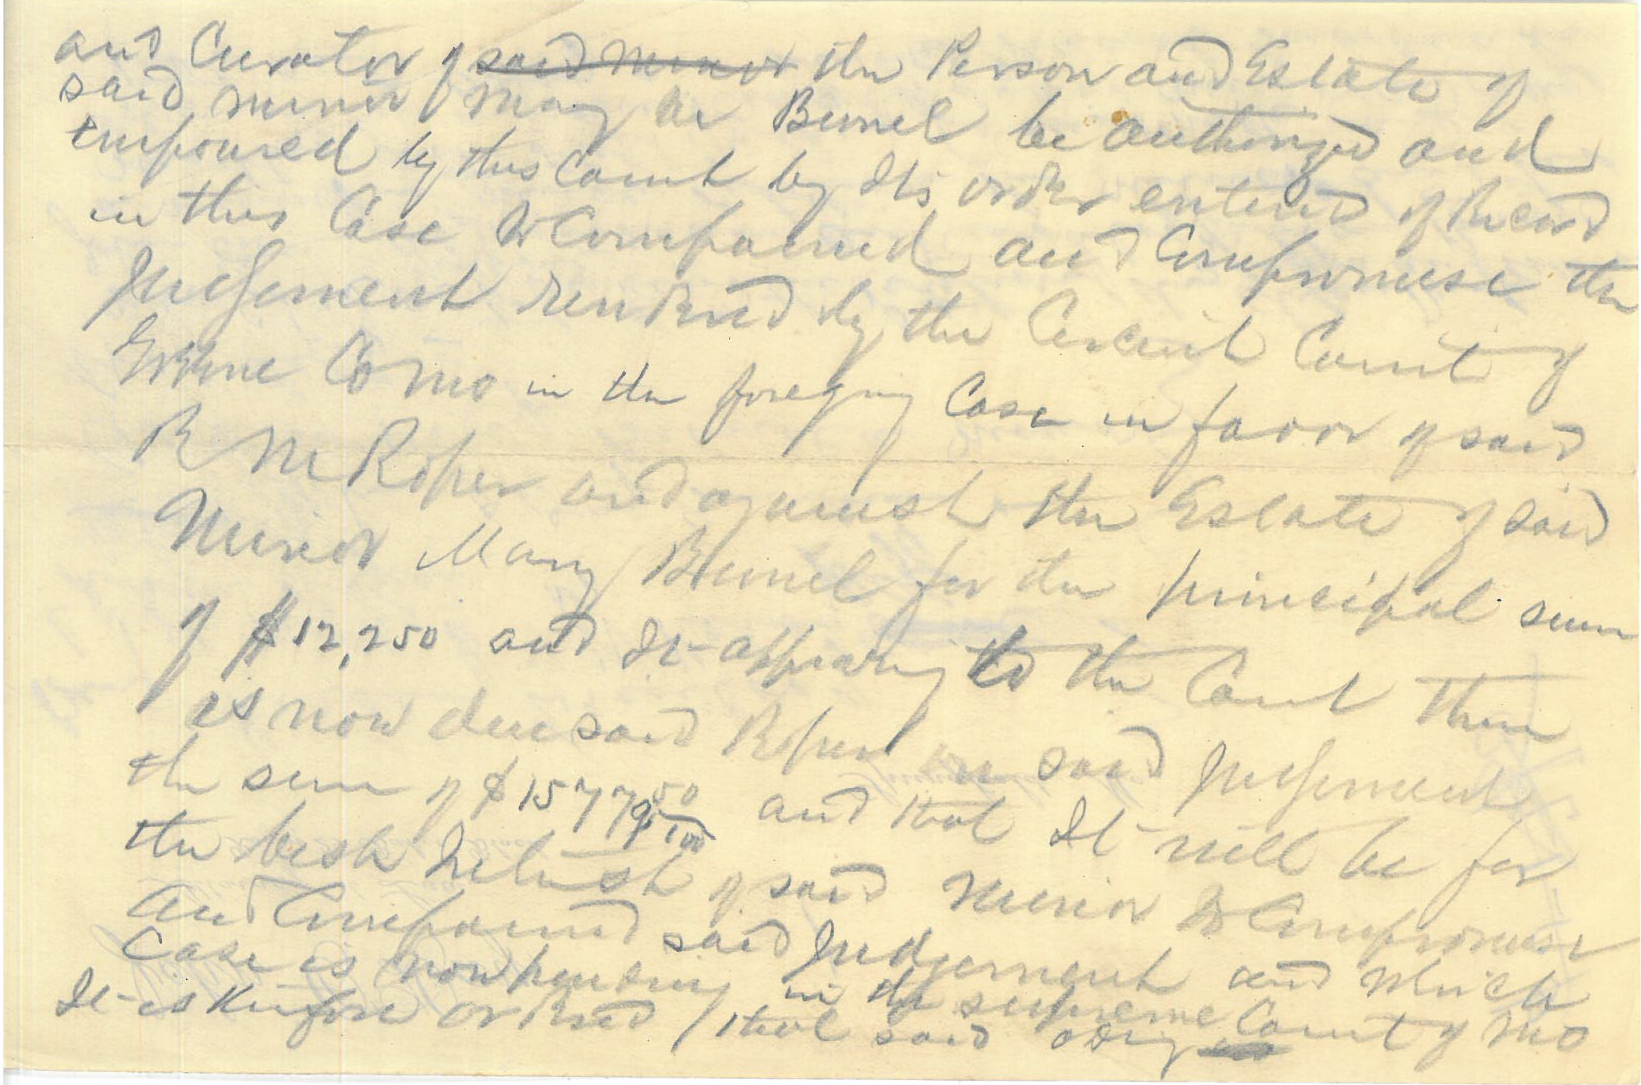 and Curator of said minor the Person and Estate of
said minor May Bunel be authorized and
empowered by this Court by Its order entered of Record
in this Case to Compound and Compromise the
Judgement rendered by the Circuit Court of
Greene Co Mo in the foregoing Case in favor of said
R M Roper and against the Estate of said
Minor Mary Bunel for the principal sum
of $12,250 and It appearing to the Court There
is now due said Roper on said Judgement
the sum of $15779 50/100 and that It will be for
the best Interest of said Minor to Compromise
And Compound said Judgement and which
Case is now pending in the supreme Court of Mo
It is therefore ordered that said